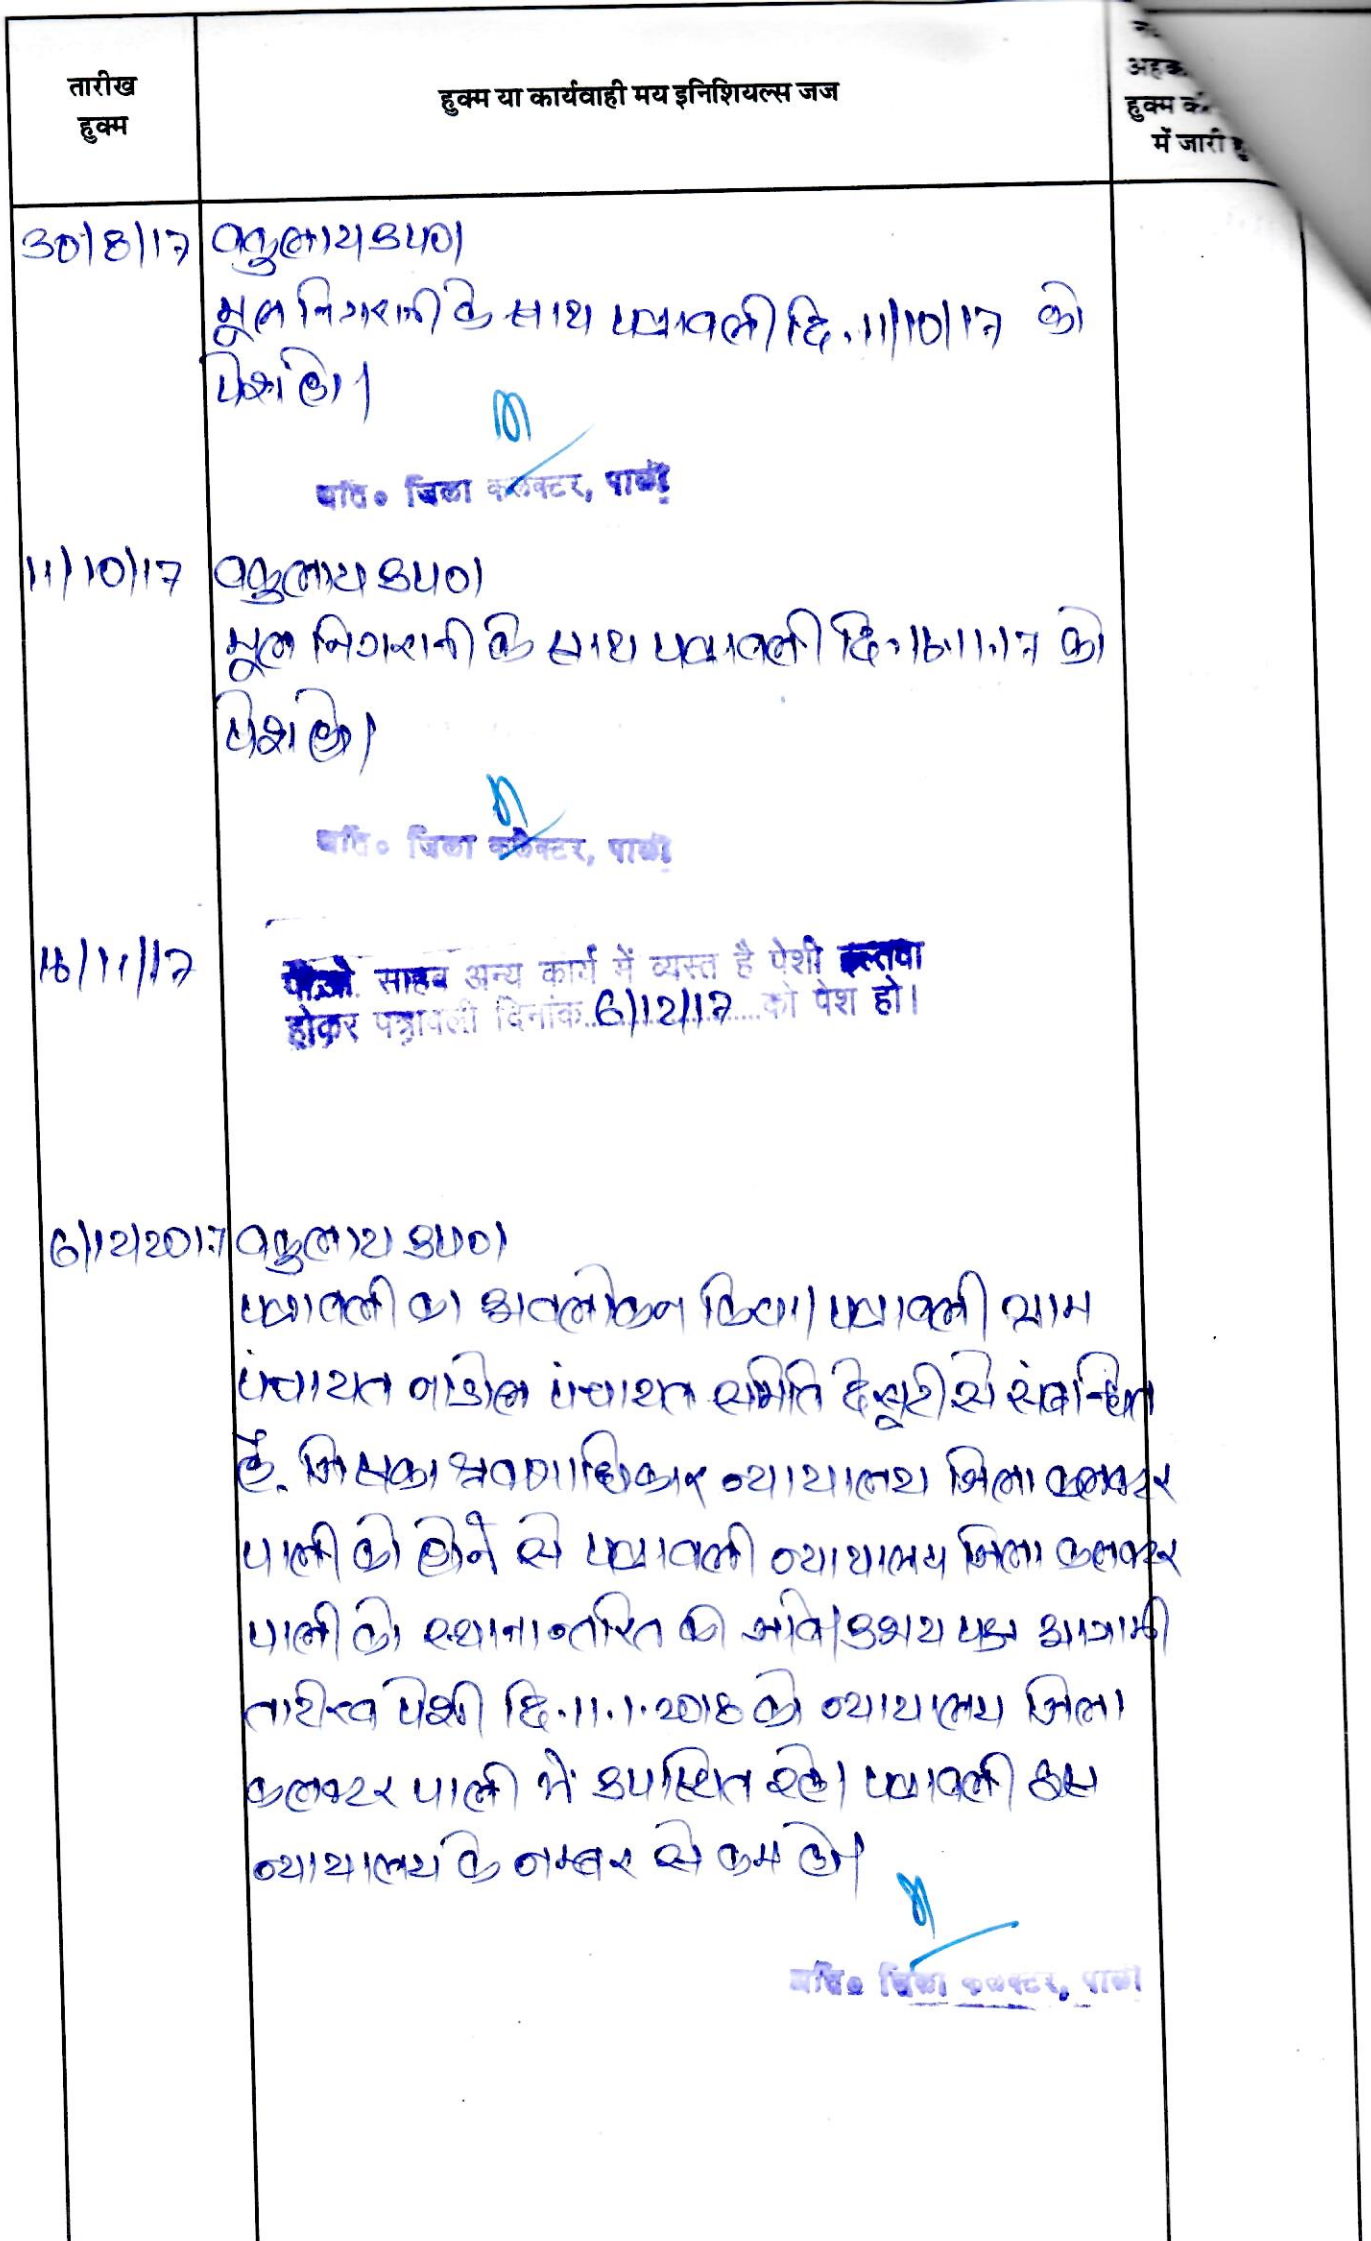 तारीख
हुक्म
हुक्म या कार्यवाही मय इनिशियल्स जज
हुक्म
में जारी
30/8/17 वकुलाय उप0।
मूल निगरानी के साथ पत्रावली दि. 11/10/17 को
पेश हो।
अति० जिला कलक्टर, पाली
11/10/17 वकुलाय उप0।
मूल निगरानी के साथ पत्रावली दि. 16.11.17 को
पेश हो।
अति० जिला कलेक्टर, पाली
16/11/17 साहब अन्य कार्य में व्यस्त है पेशी इल्तवा
होकर पत्रावली दिनांक 6/12/17 को पेश हो।
6/12/2017 वकुलाय उप0।
पत्रावली का अवलोकन किया। पत्रावली ग्राम
पंचायत नाडोल पंचायत समिति देसूरी से संबन्धित
है. जिसका श्रवणाधिकार न्यायालय जिला कलक्टर
पाली को होने से पत्रावली न्यायालय जिला कलक्टर
पाली को स्थानान्तरित की जावे। उभय पक्ष आगामी
तारीख पेशी दि. 11.1.2018 को न्यायालय जिला
कलक्टर पाली में उपस्थित रहे। पत्रावली इस
न्यायालय के नम्बर से कम हो।
अति० जिला कलक्टर, पाली